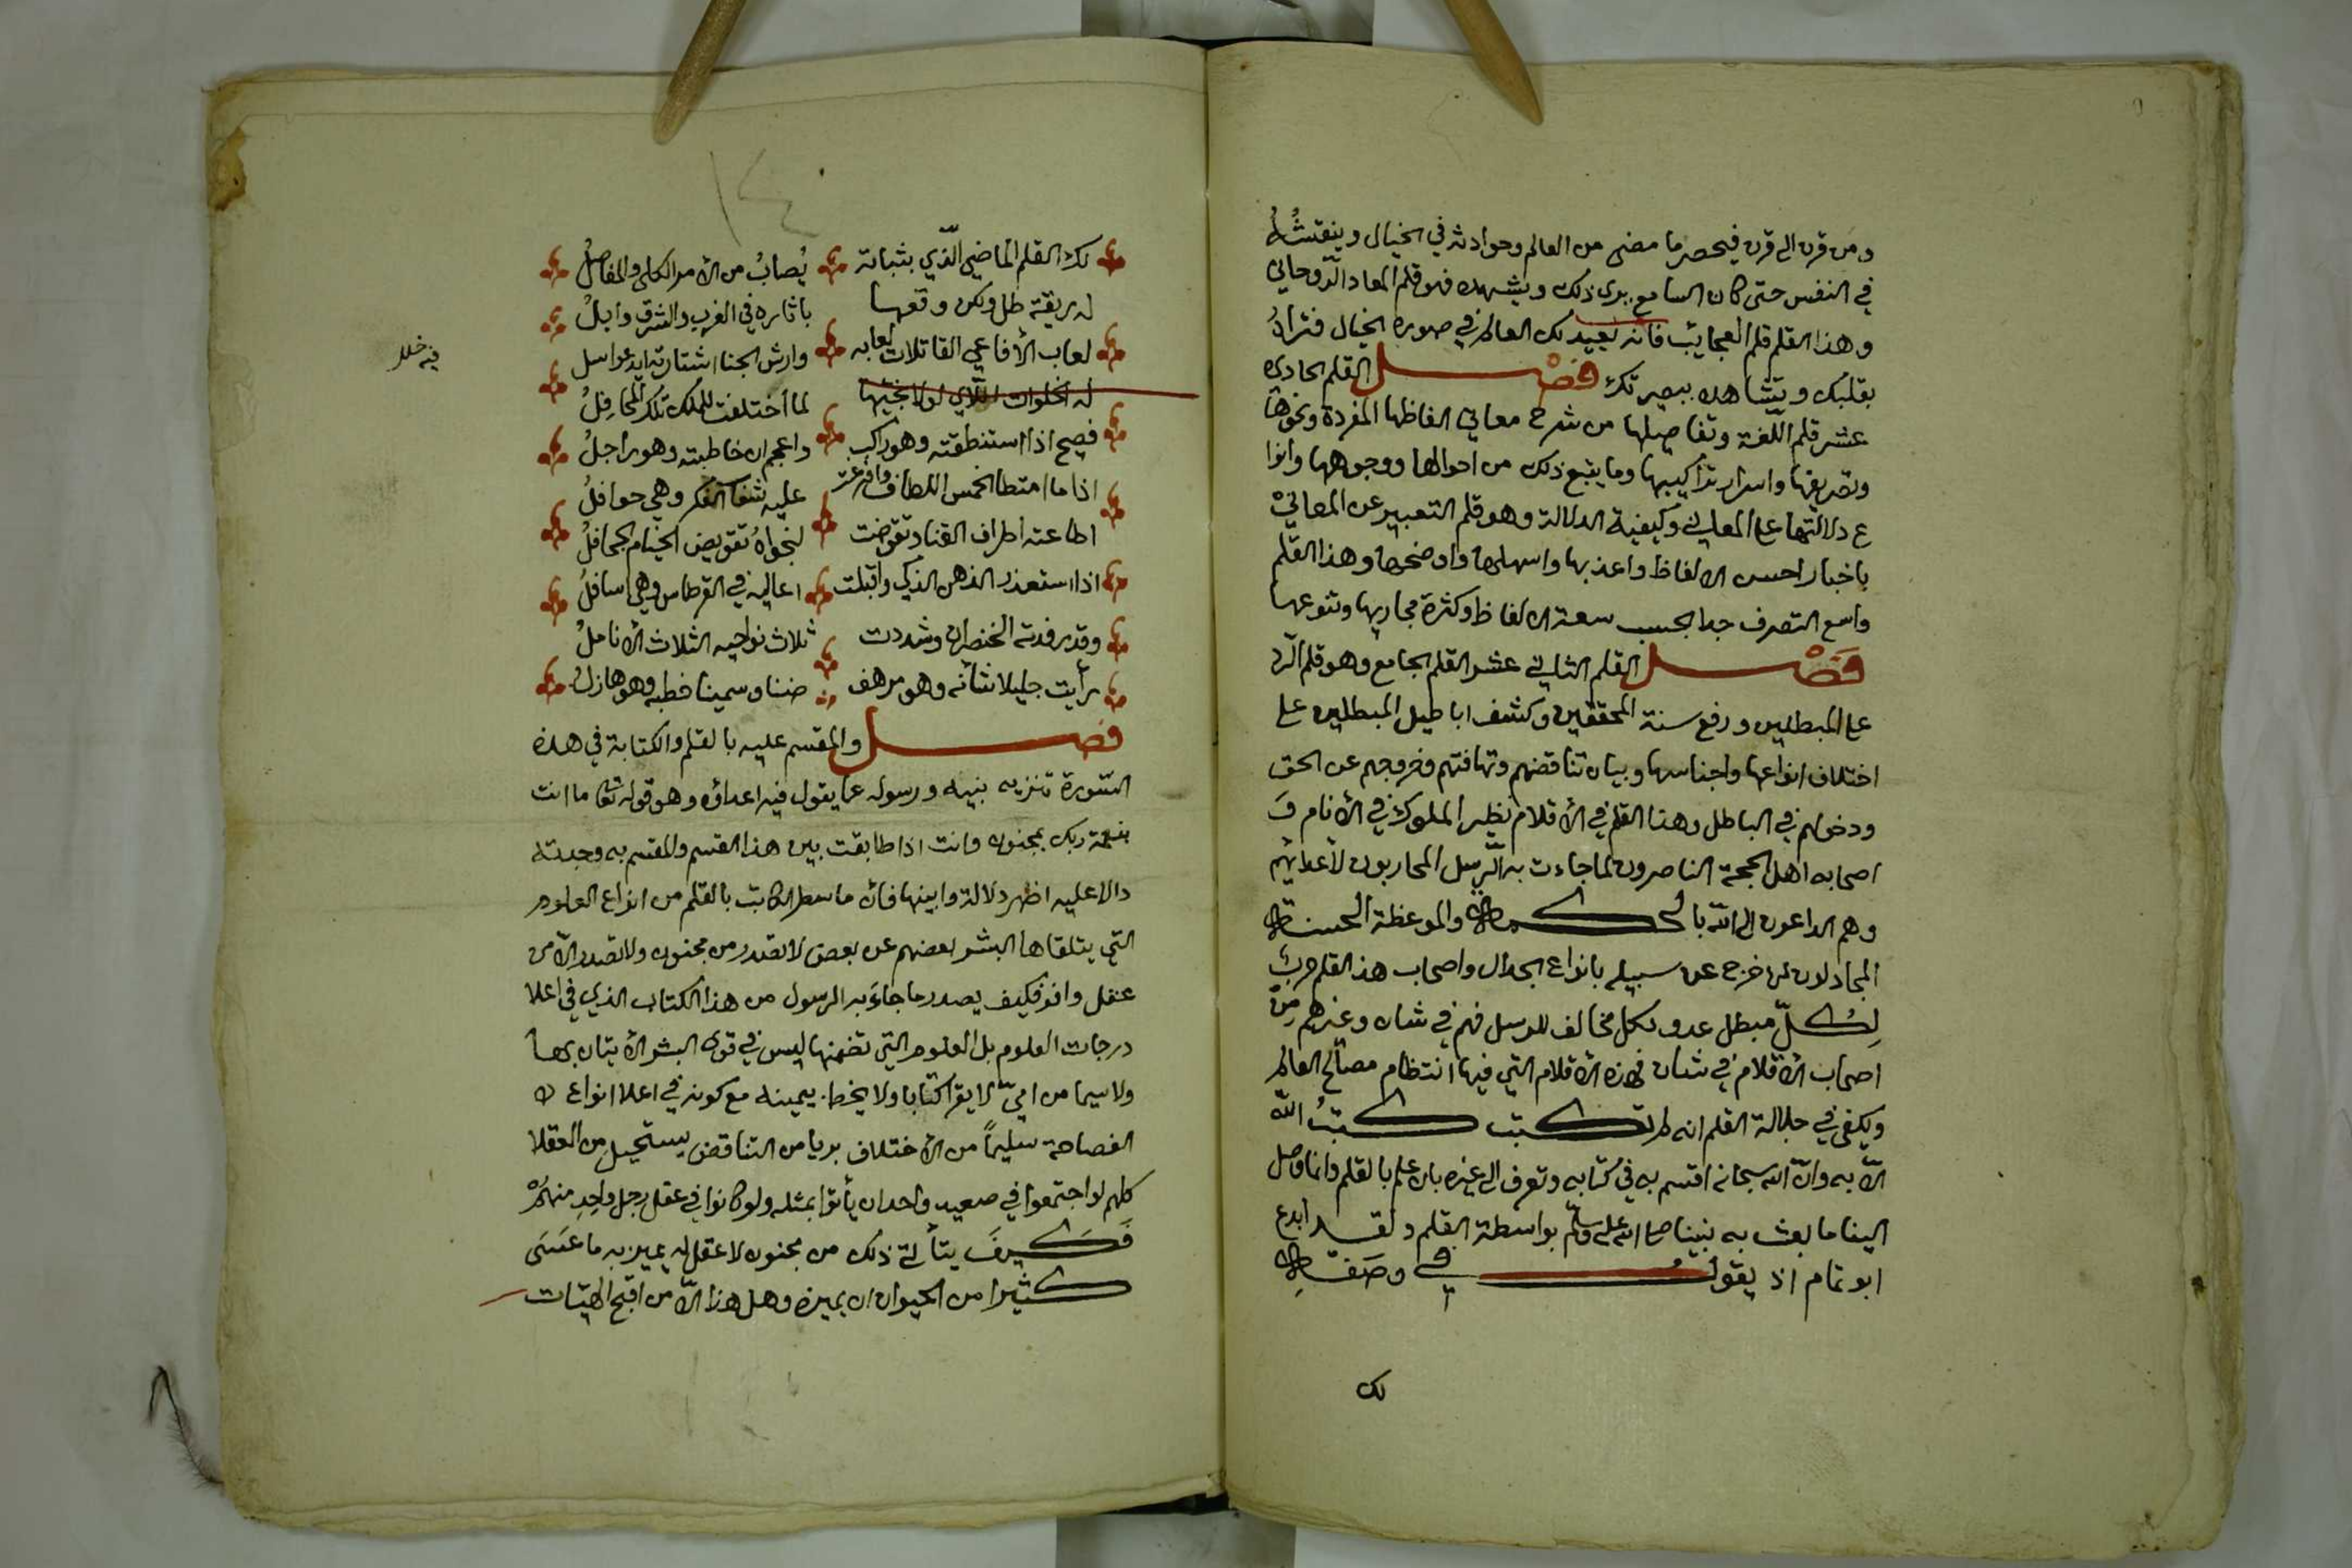 ومن قرن الى قرن فيحصر ما مضى من العالم وحوادثه في الخيال وينقشه
في النفس حتى كان السامع يرى ذلك ويشهده فهو قلم المعاد الروحاني
وهذا القلم قلم العجايب فانه يعيد لك العالم في صورة الخيال فتراه
بقلبك وتشاهده ببصيرتك فصل القلم الحادي
عشر قلم اللغة وتفاصيلها من شرح معاني الفاظها المفردة ونحوها
وتصريفها واسرار تراكيبها وما يتبع ذلك من احوالها ووجوهها وانوا
ع دلالتها على المعاني وكيفية الدلالة وهو قلم التعبير عن المعاني
باختيار احسن الالفاظ واعذبها واسهلها واوضحها وهذا القلم
واسع التصرف جدا بحسب سعة الالفاظ وكثرة مجاريها وتنوعها
فصل القلم الثاني عشر القلم الجامع وهو قلم الرد
على المبطلين ورفع سنة المحققين وكشف اباطيل المبطلين على
اختلاف انواعها واجناسها وبيان تناقضهم وتهافتهم وخروجهم عن الحق
ودخولهم في الباطل وهذا القلم في الأقلام نظير الملوك في الأنام وَ
اصحابه اهل الحجة الناصرون لما جاءت به الرسل المحاربون لأعدائهم
وهم الداعون الى الله بالحكمة والموعظة الحسنة
المجادلون لمن خرج عن سبيله بانواع الجدال واصحاب هذا القلم حرب
لِكُلّ مبطل عدو لكل مخالف للرسل فهم في شان وغيرهم مِنْ
اصحاب الأقلام في شان فهذه الأقلام التي فيها انتظام مصالح العالم
ويكفي في جلالة القلم انه لم تكتب كتبُ الله
الّا به وانّ الله سبحانه اقسم به في كتابه وتعرف الى غيره بان علم بالقلم وانما وصل
الينا ما بعث به نبينا صلى الله عليه وسلم بواسطة القلم ولقد ابدع
ابو تمام اذ يقول في وصفه
لك
لك القلم الماضي الّذي بثباته يُصابُ من الأمر الكلى والمفاصلُ
له ريقة طل ولكن وقعها باثاره في الغرب والشرق وابلُ
لعاب الأفاعي القاتلات لعابه وارش الجنا اشتارته ايد عواسل
له الخلوات اللّاي لولا نجيّها لما اختلفت للملك تلك المحافلُ
فيه خلل
فصيح اذا استنطقته وهو راكب واعجم ان خاطبته وهو راجلُ
اذا ما امتطا الخمس اللطاف وافرغت عليه شعاب الفكر وهي حوافلُ
اطاعته اطراف القنا وتقوضت لنجواهُ تقويض الخيام الجحافلُ
اذا استعذر الذهن الذكي واقبلت اعاليه في القرطاس وهي اسافلُ
وقد رفدته الخنصران وشددت ثلاث نواحيه الثلاث الأناملُ
رأيت جليلا شأنه وهو مرهف ضنا وسمينا خطبه وهو هازل
فصل والمقسم عليه بالقلم والكتابة في هذه
السّورة تنزيه نبيه ورسوله عما يقول فيه اعداؤه وهو قوله تعا ما انت
بنعمة ربك بمجنون وانت اذا طابقت بين هذا القسم والمقسم به وجدته
دالا عليه اظهر دلالة وابينها فان ما سطر الكاتب بالقلم من انواع العلوم
التي يتلقاها البشر بعضهم عن بعض لا تصدر من مجنون ولا تصدر الّا من
عقل وافر فكيف يصدر ما جاءَ به الرسول من هذا الكتاب الذي في اعلا
درجات العلوم بل العلوم التي تضمنها ليس في قوى البشر الأتيان بها
ولا سيما من امّيّ لا يقرا كتابا ولا يخط بيمينه مع كونه في اعلا انواع ا
الفصاحة سليمًا من الأختلاف بريا من التناقض يستحيل من العقلا
كلهم لو اجتمعوا في صعيد واحد ان يأتوا بمثله ولو كانوا في عقل رجل واحدِ منهمْ
فَكَيفَ يتأتى ذلك من مجنون لا عقل له يميز به ما عَسَى
كثيرا من الحيوان ان يميزه وهل هذا الّا من اقبح